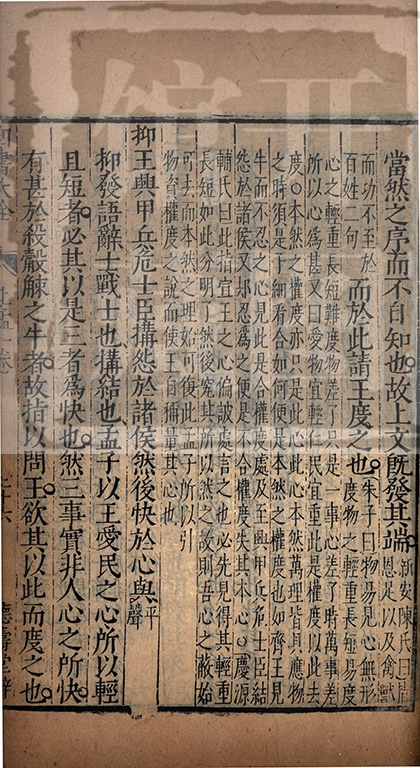 當然之序而不自知也故上文既發其端新安陳氏曰謂
恩足以及禽獸
而功不至於
百姓二句
而於此請王度之也朱子曰物易見心無形
度物之輕重長短易度
心之輕重長短難度物差了只是一事心差了時萬事差
所以心爲甚又曰愛物宜輕仁民宜重此是權度以此去
度○本然之權度亦只是此心此心本然萬理皆具應物
之時須是子細看合如何便是本然之權度也如齊王見
牛而不忍之心見此是合權度處及至興甲兵危士臣結
怨於諸侯又却忍爲之便是不合權度失其本心○慶源
輔氏曰此指宣王之心偏詖處言之也必先見得其輕重
長短如此分明了然後究其所以然之故則吾心之蔽始
可去而本然之理始可復此孟子所以引
物有權度之說而使王自稱量其心也
抑王興甲兵危士臣搆怨於諸侯然後快於心與平聲
抑發語辭士戰士也搆結也孟子以王愛民之心所以輕
且短者必其以是三者爲快也然三事實非人心之所快
有甚於殺觳觫之牛者故指以問王欲其以此而度之也